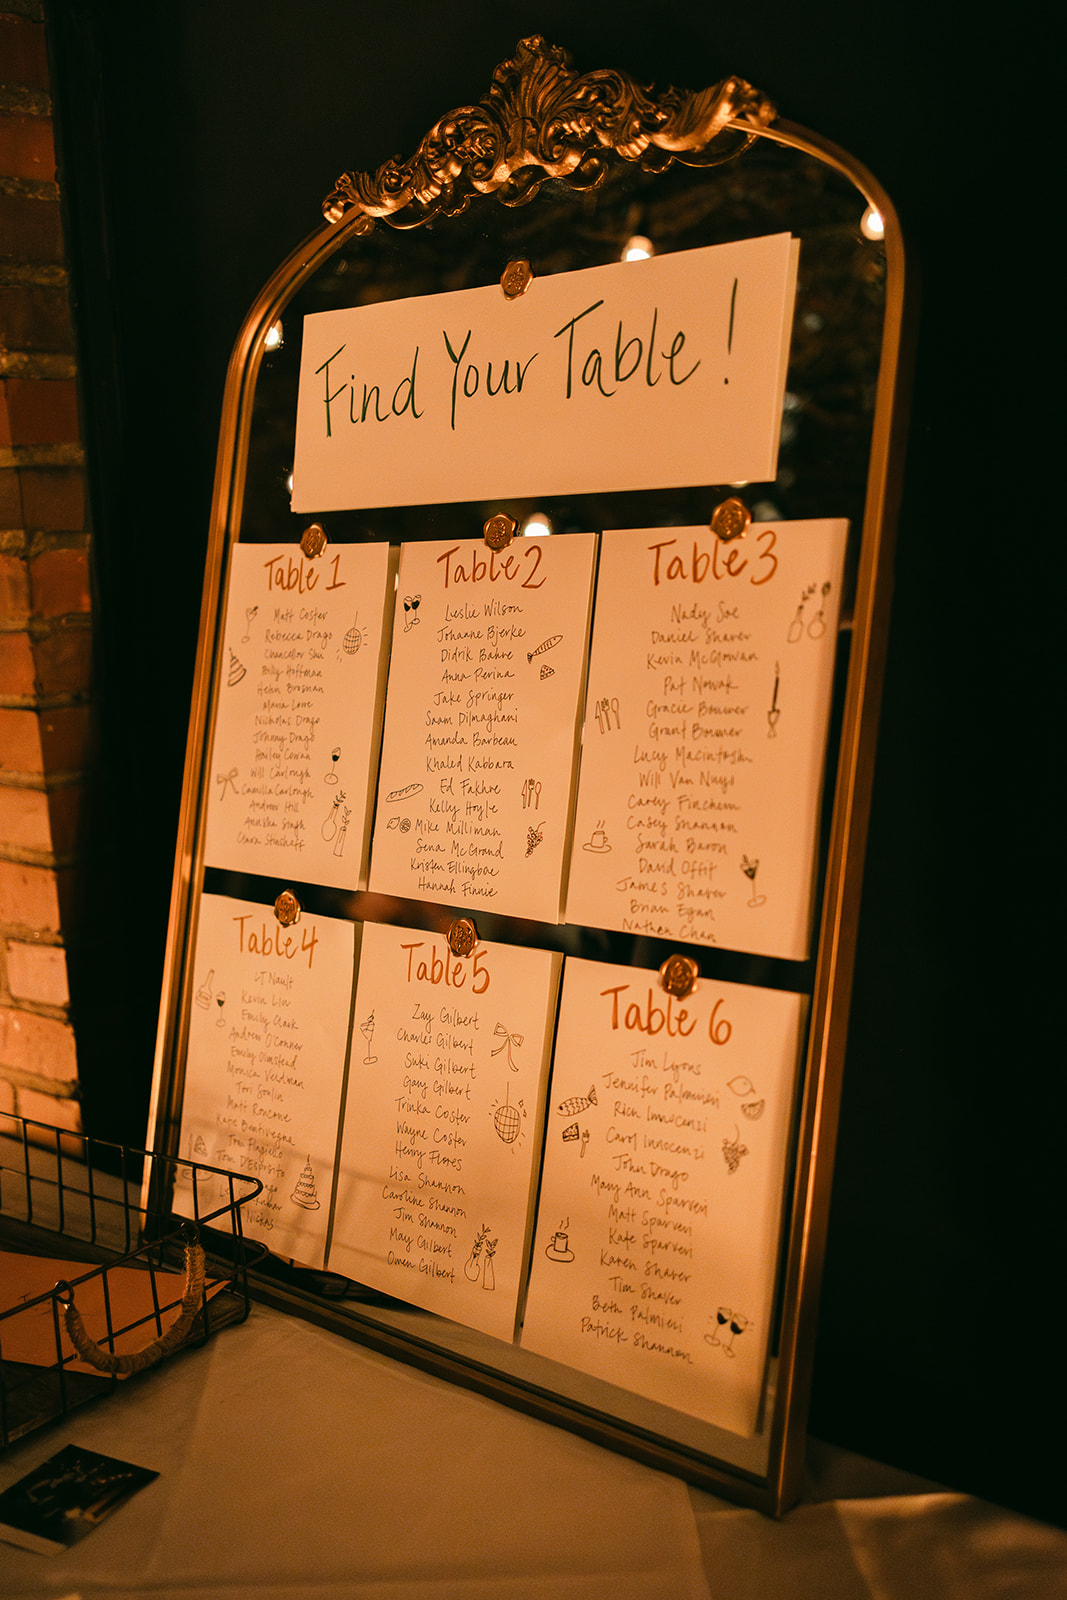 Find Your Table!
Table 1
Matt Coster
Rebecca Drago
Chancellor Shu
Billy Hoffman
Helen Brosnan
Maria Love
Nicholas Drago
Johnny Drago
Hailey Cowan
Will Carlough
Camilla Carlough
Andrew Hill
Anusha Singh
Clara
Table 2
Leslie Wilson
Johanne Bjerke
Didrik Bahre
Anna Perina
Jake Springer
Saam Dilmaghani
Amanda Barbeau
Khaled Kabbara
Ed Fakhre
Kelly Hoyle
Mike Milliman
Sena McGrand
Kristen Ellingboe
Hannah Finnie
Table 3
Nady Soe
Daniel Shaver
Kevin McGowan
Pat Nowak
Gracie Boumer
Grant Boumer
Lucy Macintosh
Will Van Nuys
Carey Finchem
Casey Shannon
Sarah Baron
David Offit
James Shaver
Brian Egan
Nathen Chan
Table 4
LT Nault
Kevin Lin
Emily Clark
Andrew O'Connor
Emily Olmstead
Monica Veldman
Tori
Matt Roncone
Kate Bentivegna
Tom Flagiello
Tom D'Esposito
Table 5
Zay Gilbert
Charles Gilbert
Suki Gilbert
Gary Gilbert
Trinka Coster
Wayne Coster
Henry Flores
Lisa Shannon
Caroline Shannon
Jim Shannon
May Gilbert
Owen Gilbert
Table 6
Jim Lyons
Jennifer Palmineri
Rich Innocenzi
Caryl Innocenzi
John Drago
Mary Ann Sparveri
Matt Sparveri
Kate Sparveri
Karen Shaver
Tim Shaver
Beth Palmieri
Patrick Shannon